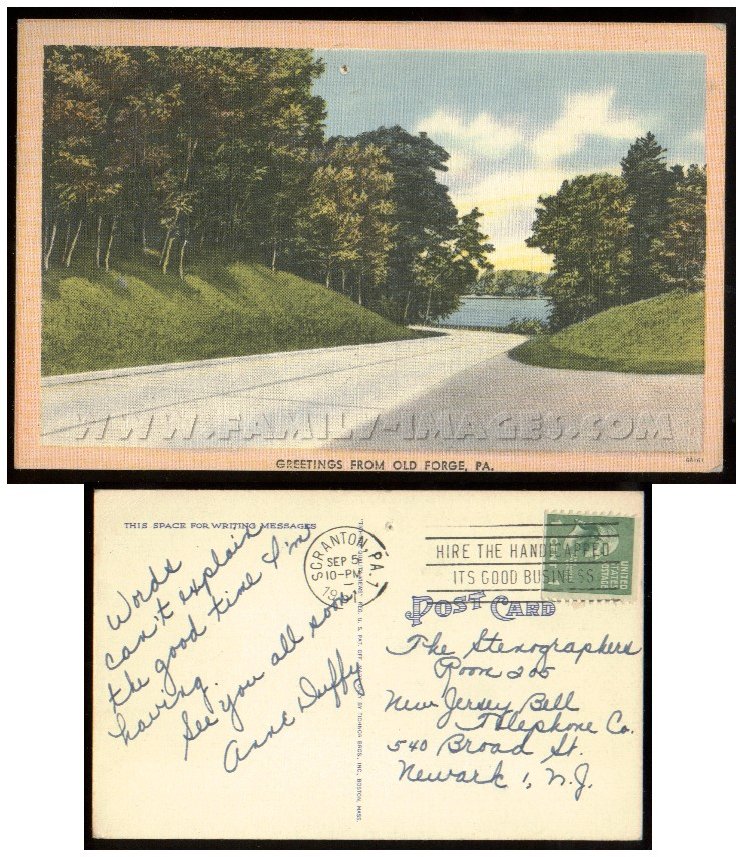 WWW.FAMILY-IMAGES.COM
GREETINGS FROM OLD FORGE, PA.
THIS SPACE FOR WRITING MESSAGES
Words
can't explain
the good time I'm
having.
See you all soon,
Anne Duffy
SCRANTON, PA.
SEP 5
10-PM
HIRE THE HANDICAPPED
ITS GOOD BUSINESS
UNITED
STATES
POSTAGE
POST CARD
The Stenographers
Room 205
New Jersey Bell
Telephone Co.
540 Broad St.
Newark 1, N.J.
BY TICHNOR BROS., INC., BOSTON, MASS.